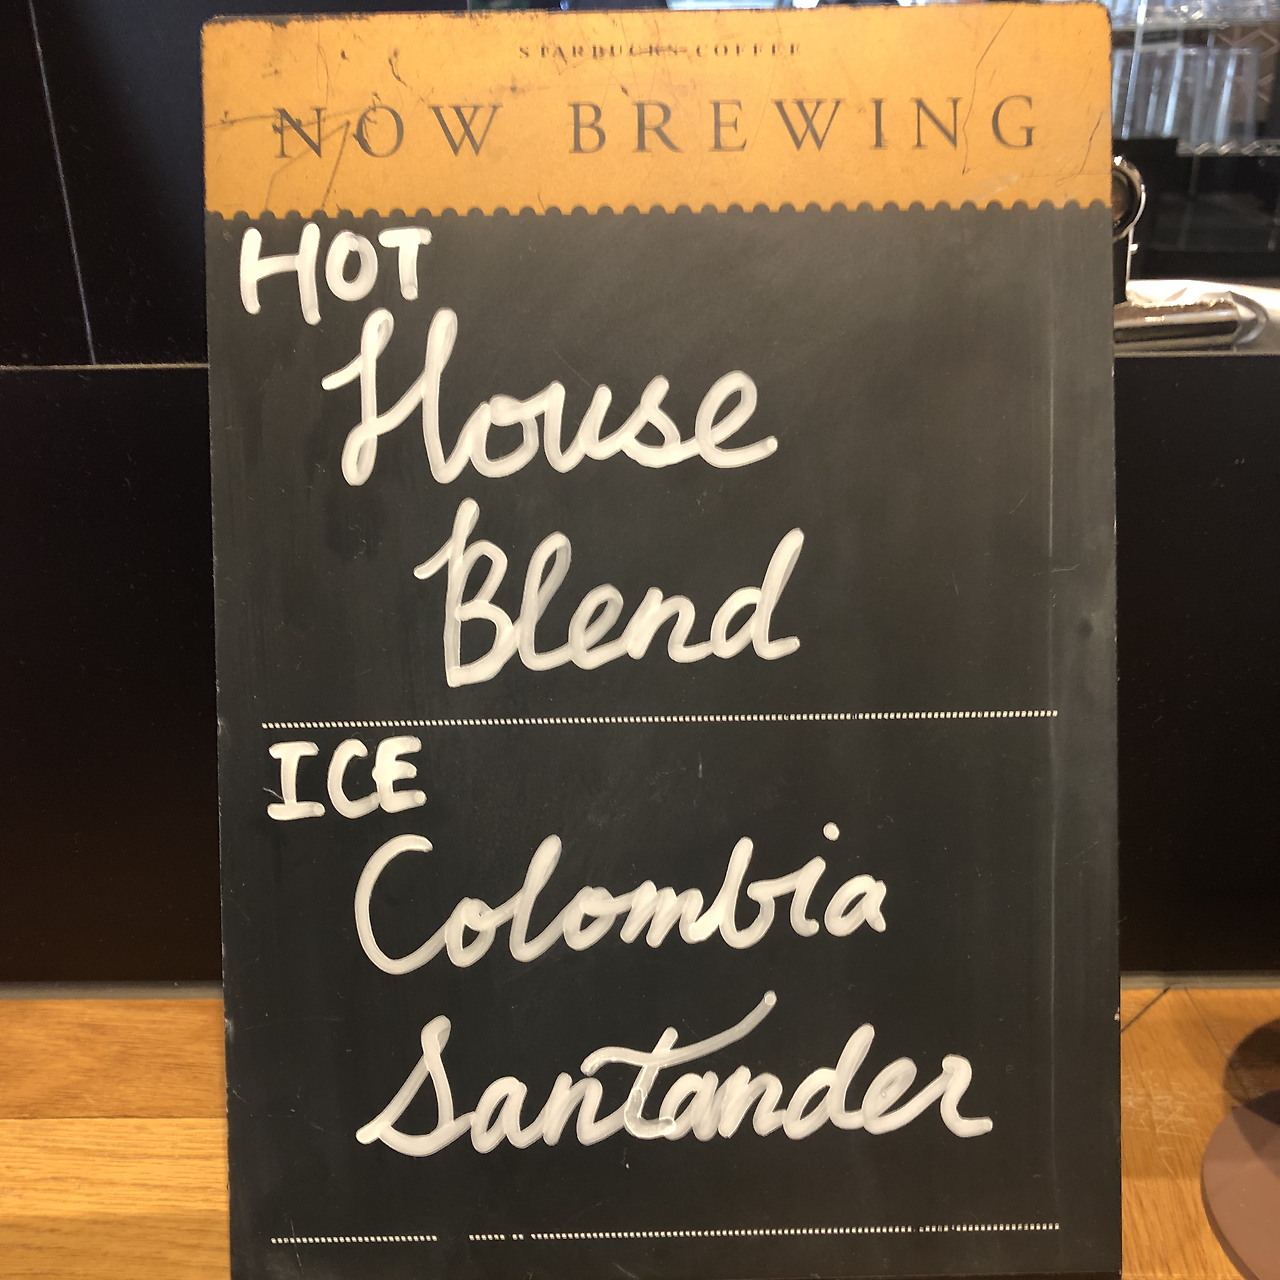 STARBUCKS COFFEE
NOW BREWING
HOT
House
Blend
ICE
Colombia
Santander